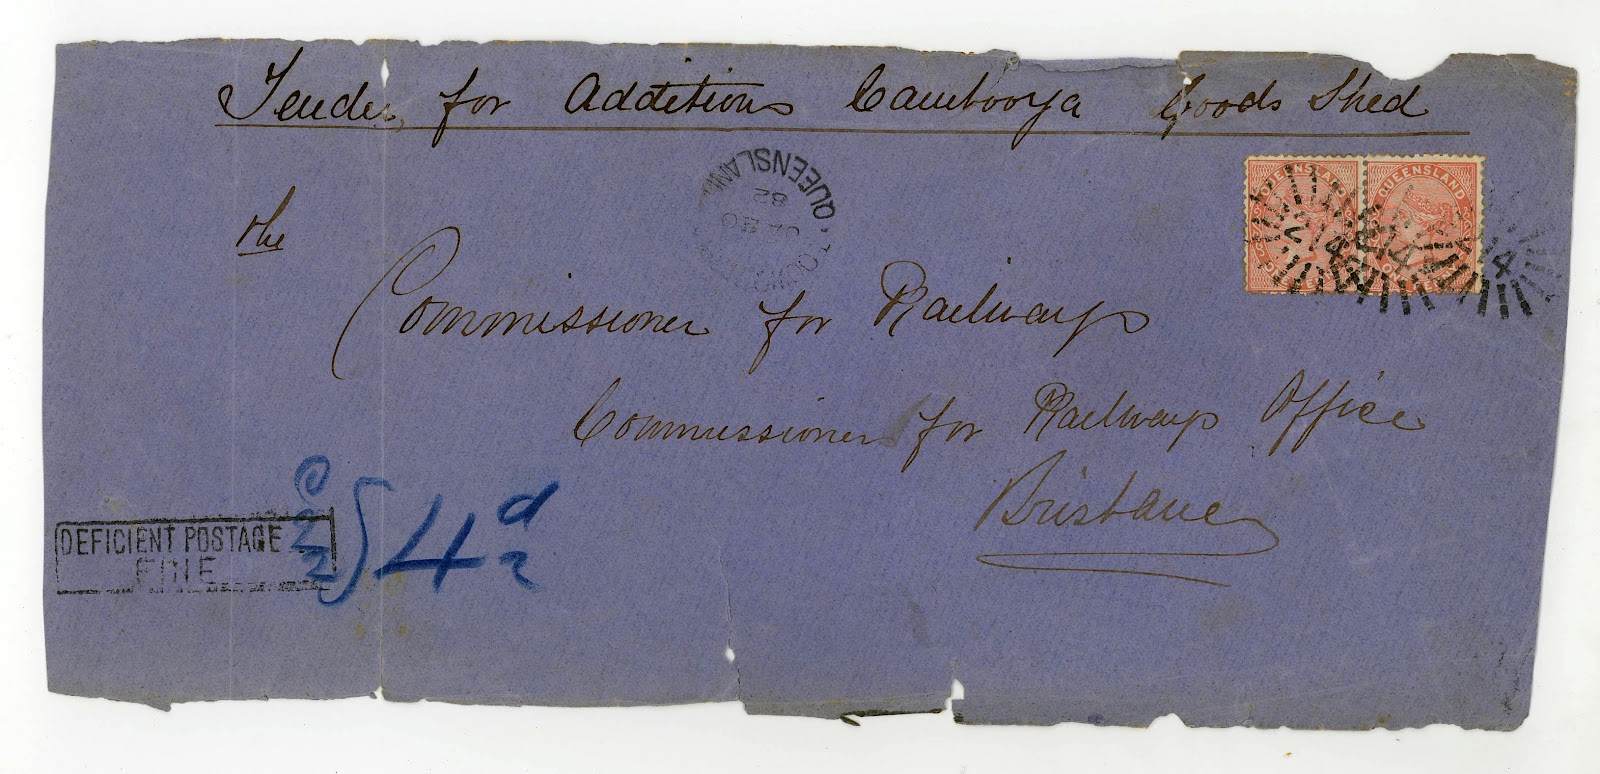 Tender for Additions Cambooya Goods Shed
QUEENSLAND
82
QUEENSLAND QUEENSLAND
214 214 4
the
Commissioner for Railways
Commissioner for Railways Office
Brisbane
DEFICIENT POSTAGE
FINE
2
2
4d
2